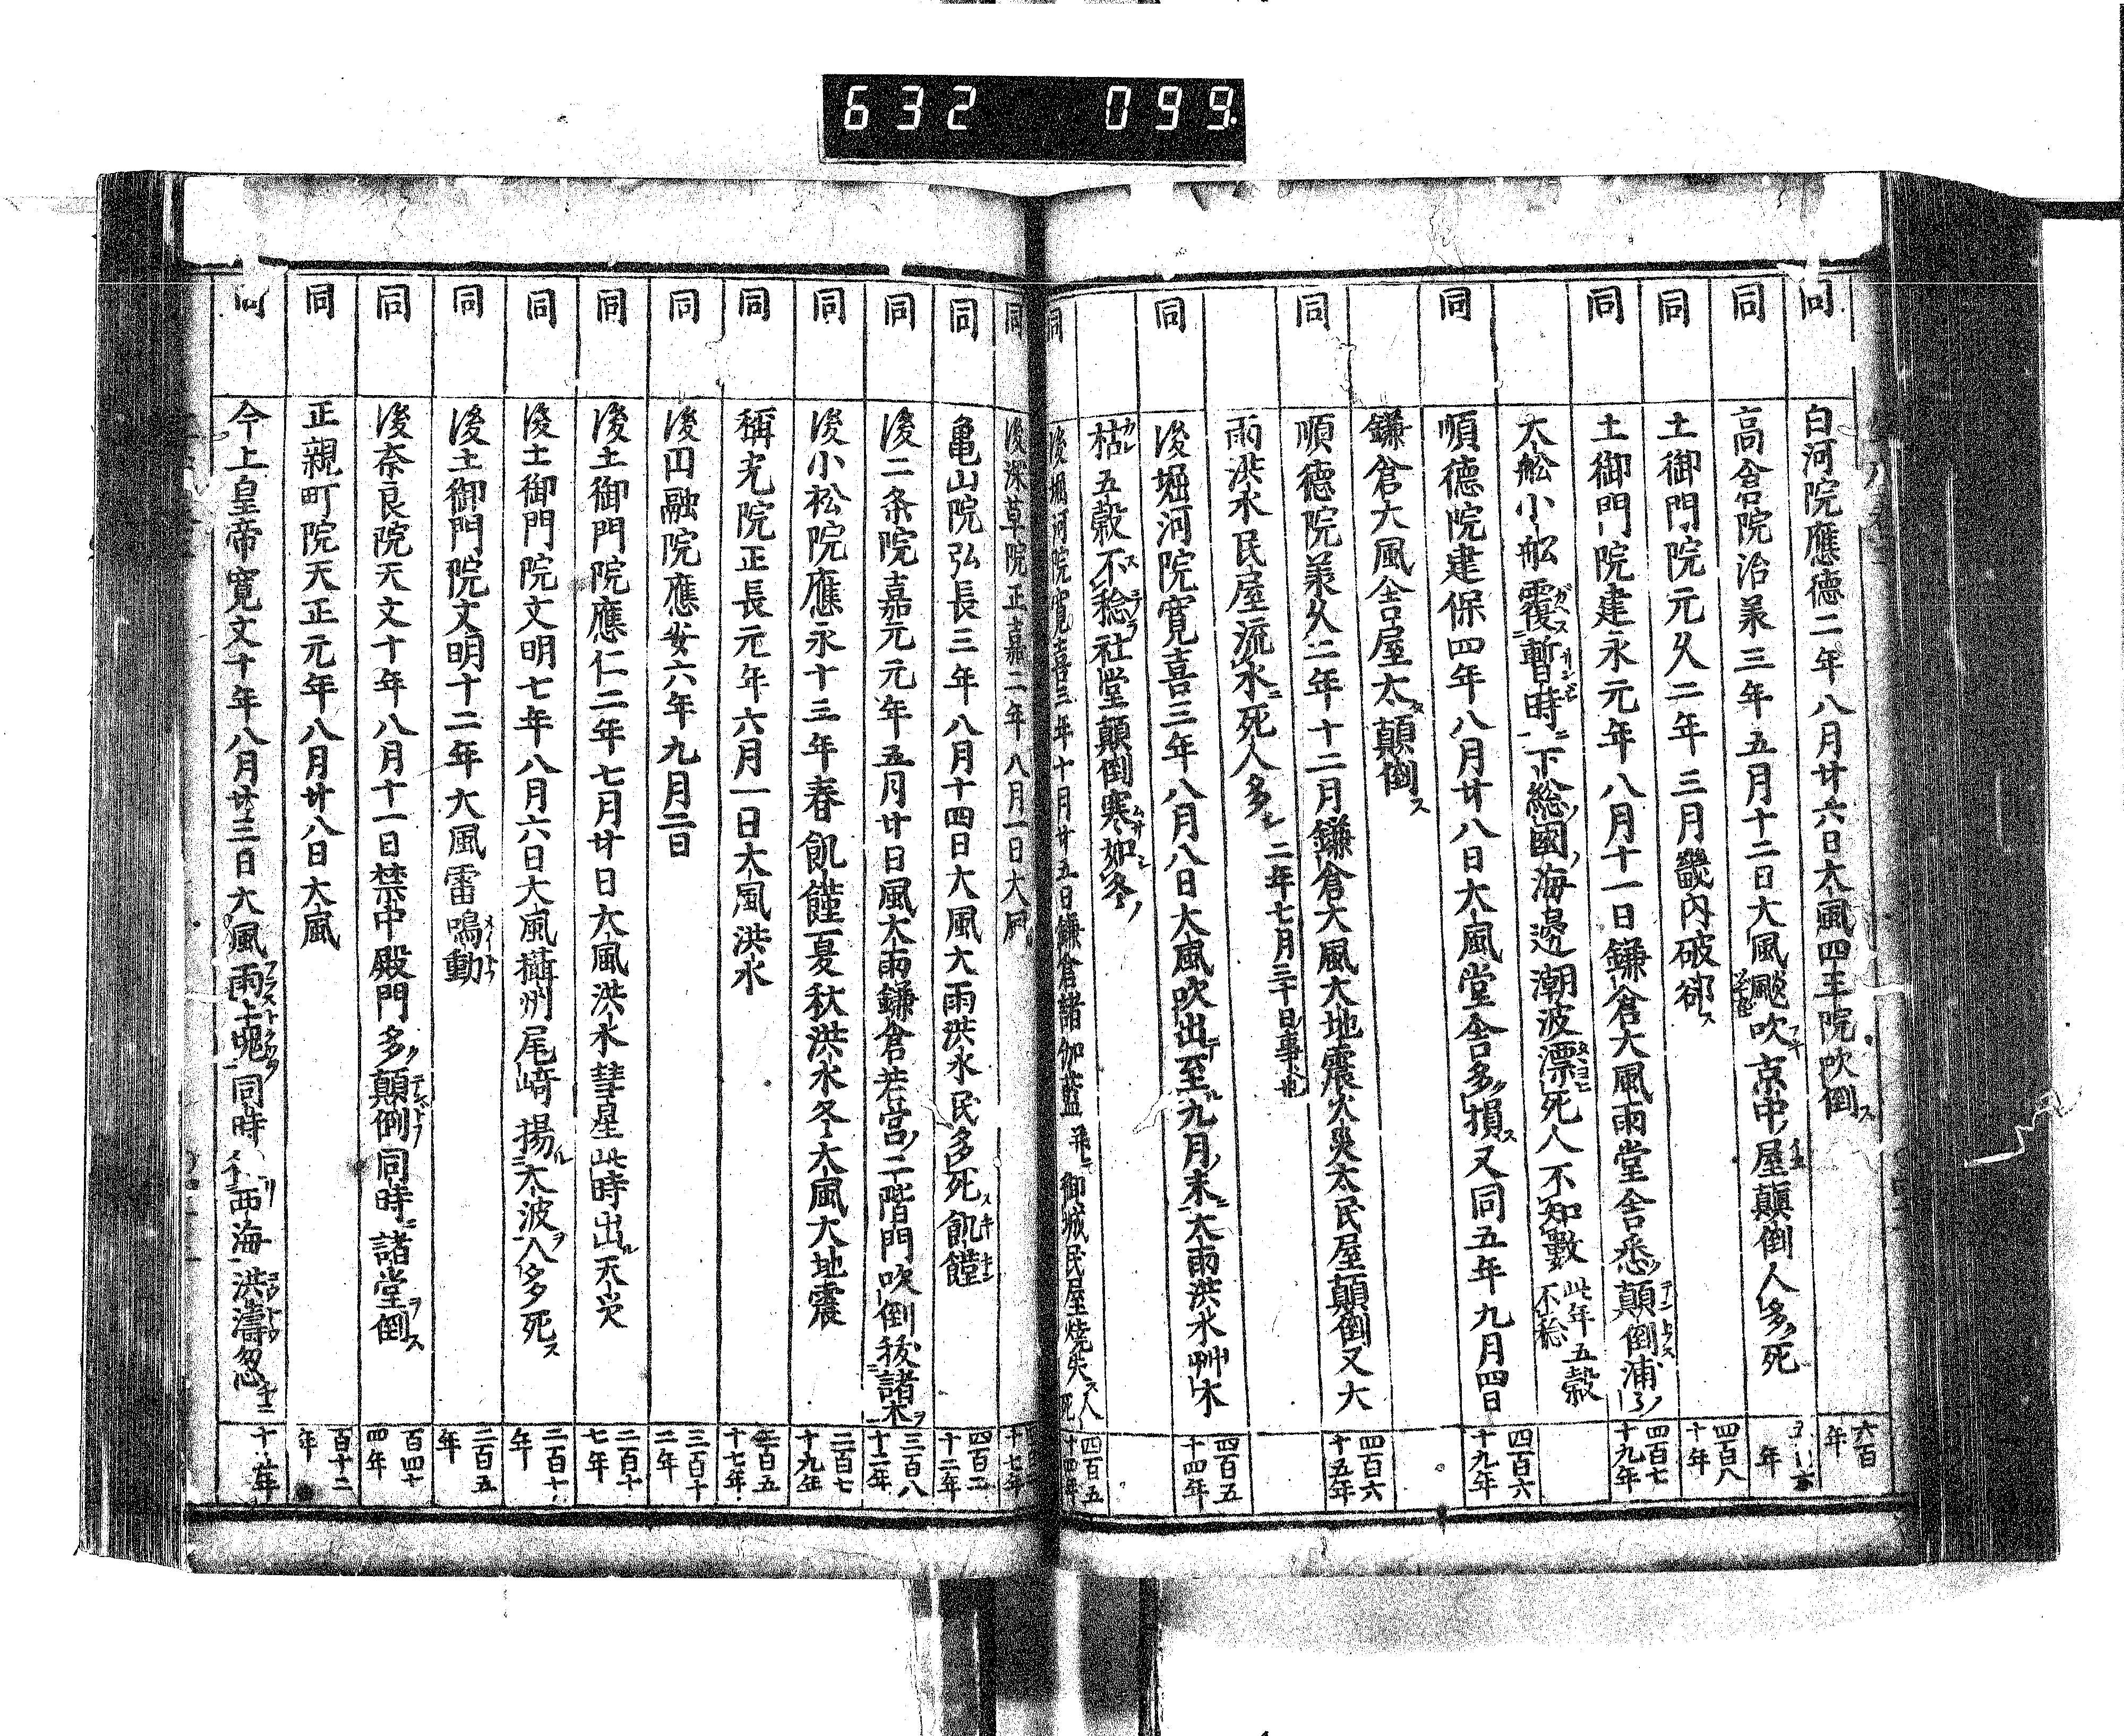 632 099.
同 白河院應徳二年八月廿六日大風四王院吹倒ス 六百年
同 高倉院治承三年五月十二日大風颷吹京中屋顛倒人多死 年
同 土御門院元久二年三月畿内破郤ス 四百八十年
同 土御門院建永元年八月十一日鎌倉大風雨堂舎悉顛倒浦 四百七十九年
大舩小舩覆暫時下総國海邉潮波漂死人不知數 此年五穀不稔
同 順徳院建保四年八月廿八日大風堂舎多損ス又同五年九月四日 四百六十九年
鎌倉大風舎屋太顛倒ス
同 順徳院承久二年十二月鎌倉大風大地震火災太民屋顛倒又大 四百六十五年
雨洪水民屋流水ニ死人多シ 二年七月三十日事也
同 後堀河院寛喜三年八月八日大風吹出至九月末大雨洪水艸木 四百五十四年
枯五穀不稔社堂顛倒寒如冬
同 後堀河院寛喜三年十月廿五日鎌倉諸伽藍 御城民屋燒失ス人死 四百五十四年
同 後深草院正嘉二年八月一日大風 十七年
同 亀山院弘長三年八月十四日大風大雨洪水民多死飢饉 四百二十二年
同 後二条院嘉元元年五月廿日風大雨鎌倉若宮二階門吹倒秡諸木 三百八十二年
同 後小松院應永十三年春飢饉夏秋洪水冬大風大地震 二百七十九年
同 稱光院正長元年六月一日大風洪水 二百五十七年
同 後円融院應安六年九月二日 三百十二年
同 後土御門院應仁二年七月廿日大風洪水彗星此時出天災 二百十七年
同 後土御門院文明七年八月六日大風攝州尾﨑揚大波人多死ス 二百十年
同 後土御門院文明十二年大風雷鳴動 二百五年
同 後奈良院天文十年八月十一日禁中殿門多顛倒同時諸堂倒 百四十四年
同 正親町院天正元年八月廿八日大風 百十二年
同 今上皇帝寛文十年八月廿三日大風雨土塊同時 西海洪濤忽 十 年